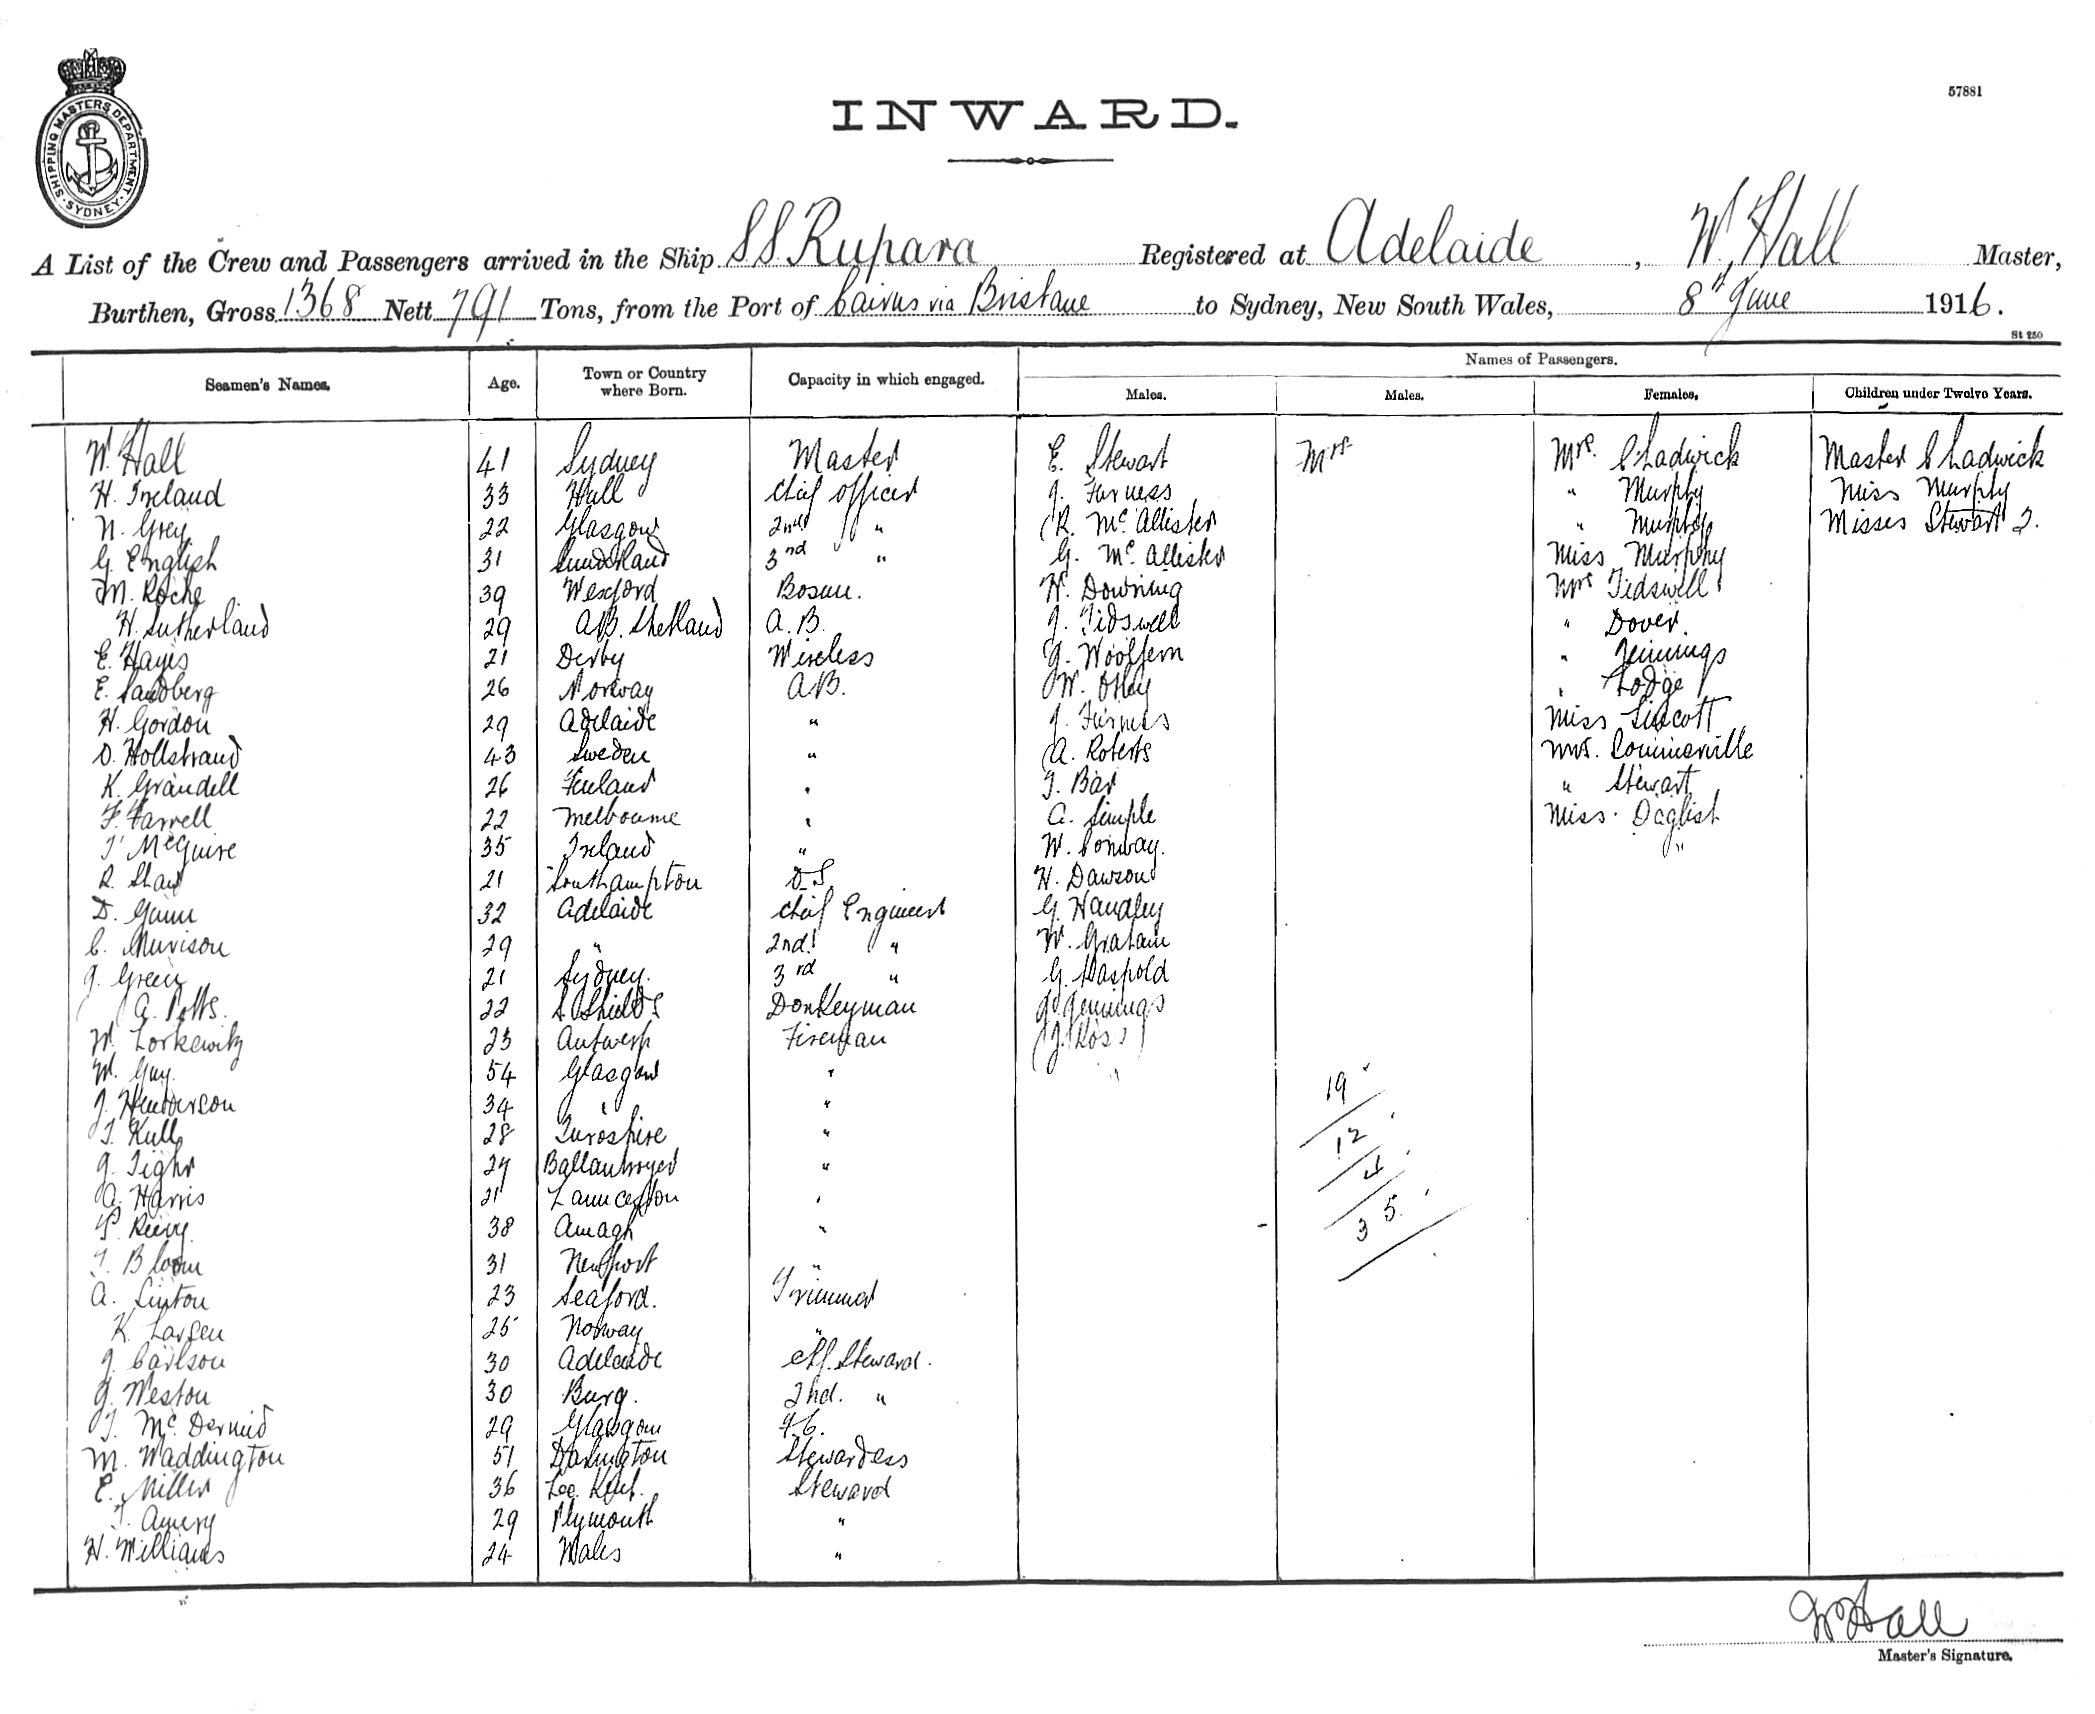 SHIPPING MASTERS DEPARTMENT. SYDNEY.
57881
INWARD.
A List of the Crew and Passengers arrived in the Ship S.S. Rupara Registered at Adelaide, W. Hall Master,
Burthen, Gross 1368 Nett 791 Tons, from the Port of Cairns via Brisbane to Sydney, New South Wales, 8th June 1916.
St 250
Names of Passengers.
Seamen's Names. Age. Town or Country where Born. Capacity in which engaged. Males. Males. Females. Children under Twelve Years.
W. Hall 41 Sydney Master E. Stewart Mrs Mrs. Chadwick Master Chadwick
H. Ireland 33 Hull Chief Officer J. Furness " Murphy Miss Murphy
N. Grey 22 Glasgow 2nd " R. McAllister " Murphy Misses Stewart 2.
G. English 31 Sunderland 3rd " G. McAllister Miss Murphy
M. Roche 39 Wexford Bosun. H. Downing Mrs Tidswell
H. Sutherland 29 A.B. Shetland A.B. J. Tidswell " Dover.
E. Hayes 21 Derby Wireless G. Woolfern " Jennings
E. Sandberg 26 Norway A.B. W. Otley " Lodge
H. Gordon 29 Adelaide " J. Furness Miss
O. Hollstrand 43 Sweden " A. Roberts Mrs. Sommerville
K. Grandell 26 Finland " T. Bar " Stewart
F. Farrell 22 Melbourne " A. Simple Miss. Daglish
T. McGuire 35 Ireland " W. Conway. "
R. Shaw 21 Southampton O.S H. Dawson
D. Gunn 32 Adelaide Chief Engineer G. Handley
C. Murison 29 " 2nd. " W. Graham
J. Green 21 Sydney. 3rd " G.
A. Potts. 22 S. Shields Donkeyman G. Jennings
W. Lorkewitz 23 Antwerp Fireman J. Ross
W. Guy. 54 Glasgow " "
J. Henderson 34 " " 19
T. Kull 28 " 12
J. Tighr 27 " 4
A. Harris 21 Launceston " 35.
P. 38 Amagh "
T. Bloom 31 Newport "
A. Linton 23 Seaford. Trimmer
K. Larsen 25 Norway "
J. Carlson 30 Adelaide Chf. Steward.
G. Weston 30 Burg. 2nd. "
T. McDermid 29 Glasgow F.C.
M. Waddington 51 Darlington Stewardess
E. Miller 36 Steward
T. Amery 29 Plymouth "
H. Williams 24 Wales "
W Hall
Master's Signature.